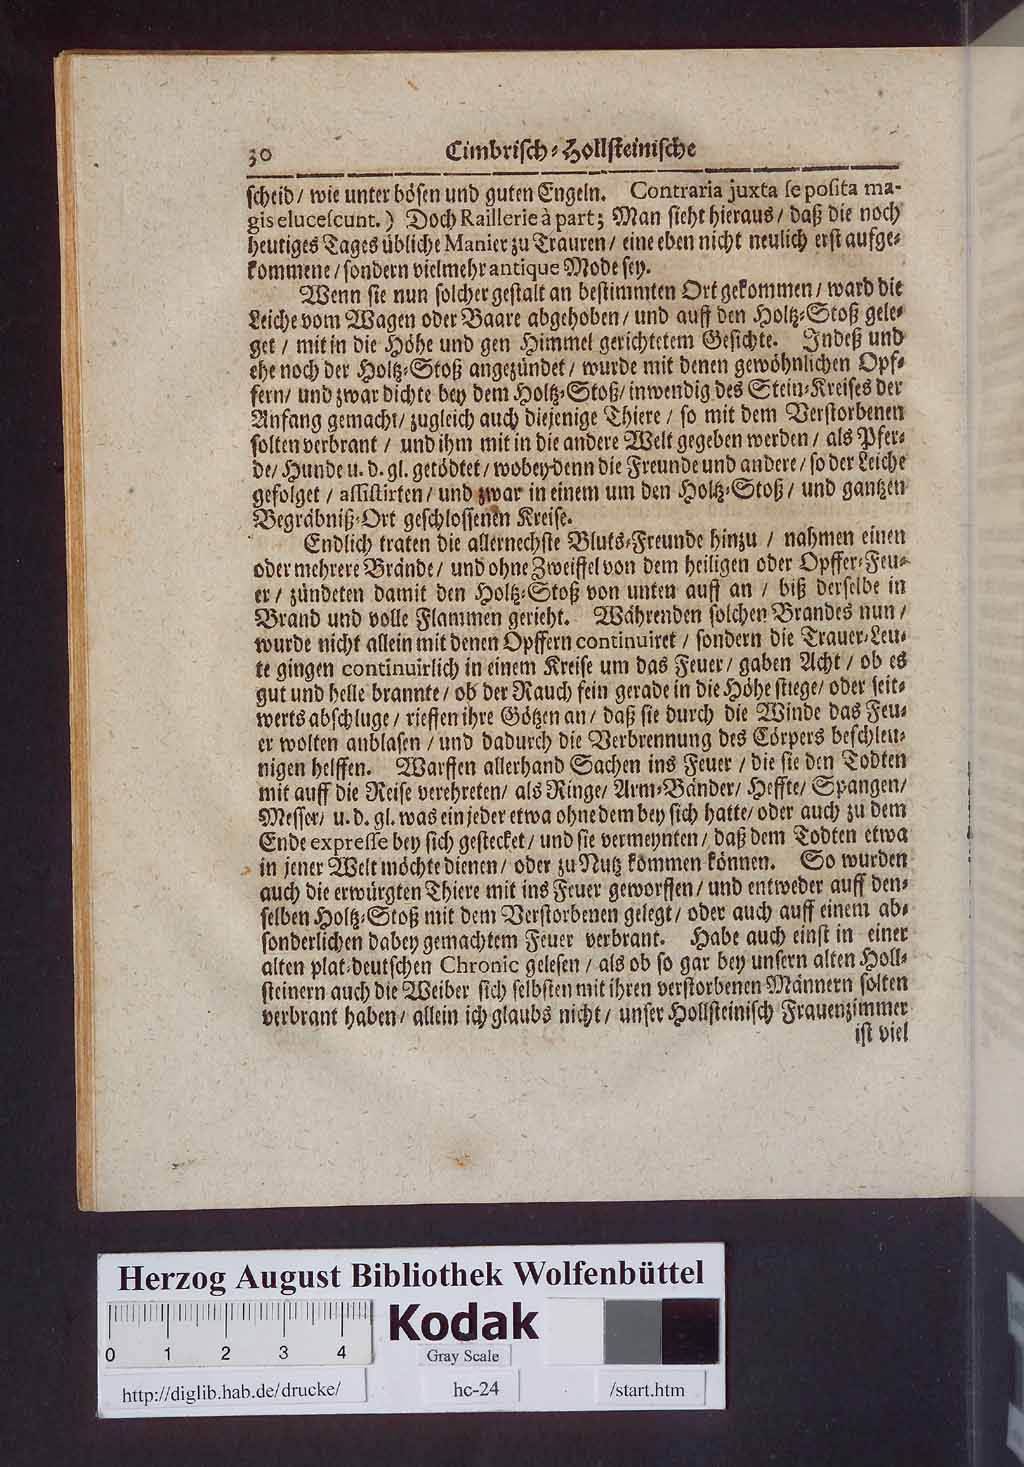 30 Cimbrisch-Hollsteinische
scheid / wie unter bösen und guten Engeln. Contraria juxta se posita ma-
gis elucescunt.) Doch Raillerie à part; Man sieht hieraus / daß die noch
heutiges Tages übliche Manier zu Trauren / eine eben nicht neulich erst aufge-
kommene / sondern vielmehr antique Mode sey.
Wenn sie nun solcher gestalt an bestimmten Ort gekommen / ward die
Leiche vom Wagen oder Baare abgehoben / und auff den Holtz-Stoß gele-
get / mit in die Höhe und gen Himmel gerichtetem Gesichte. Indeß und
ehe noch der Holtz-Stoß angezündet / wurde mit denen gewöhnlichen Opf-
fern / und zwar dichte bey dem Holtz-Stoß / inwendig des Stein-Kreises der
Anfang gemacht / zugleich auch diejenige Thiere / so mit dem Verstorbenen
solten verbrant / und ihm mit in die andere Welt gegeben werden / als Pfer-
de / Hunde u. d. gl. getödtet / wobey denn die Freunde und andere / so der Leiche
gefolget / assistirten / und zwar in einem um den Holtz-Stoß / und gantzen
Begräbniß-Ort geschlossenen Kreise.
Endlich traten die allernechste Bluts-Freunde hinzu / nahmen einen
oder mehrere Brände / und ohne Zweiffel von dem heiligen oder Opffer-Feu-
er / zündeten damit den Holtz-Stoß von unten auff an / biß derselbe in
Brand und volle Flammen gerieht. Währenden solchen Brandes nun /
wurde nicht allein mit denen Opffern continuiret / sondern die Trauer-Leu-
te gingen continuirlich in einem Kreise um das Feuer / gaben Acht / ob es
gut und helle brannte / ob der Rauch fein gerade in die Höhe stiege / oder seit-
werts abschluge / rieffen ihre Götzen an / daß sie durch die Winde das Feu-
er wolten anblasen / und dadurch die Verbrennung des Cörpers beschleu-
nigen helffen. Warffen allerhand Sachen ins Feuer / die sie den Todten
mit auff die Reise verehreten / als Ringe / Arm-Bänder / Heffte / Spangen /
Messer / u. d. gl. was ein jeder etwa ohne dem bey sich hatte / oder auch zu dem
Ende expresse bey sich gestecket / und sie vermeynten / daß dem Todten etwa
in jener Welt möchte dienen / oder zu Nutz kommen können. So wurden
auch die erwürgten Thiere mit ins Feuer geworffen / und entweder auff den-
selben Holtz-Stoß mit dem Verstorbenen gelegt / oder auch auff einem ab-
sonderlichen dabey gemachtem Feuer verbrant. Habe auch einst in einer
alten plat-deutschen Chronic gelesen / als ob so gar bey unsern alten Holl-
steinern auch die Weiber sich selbsten mit ihren verstorbenen Männern solten
verbrant haben / allein ich glaubs nicht / unser Hollsteinisch Frauenzimmer
ist viel
Herzog August Bibliothek Wolfenbüttel
Kodak
0 1 2 3 4
Gray Scale
http://diglib.hab.de/drucke/ hc-24 /start.htm